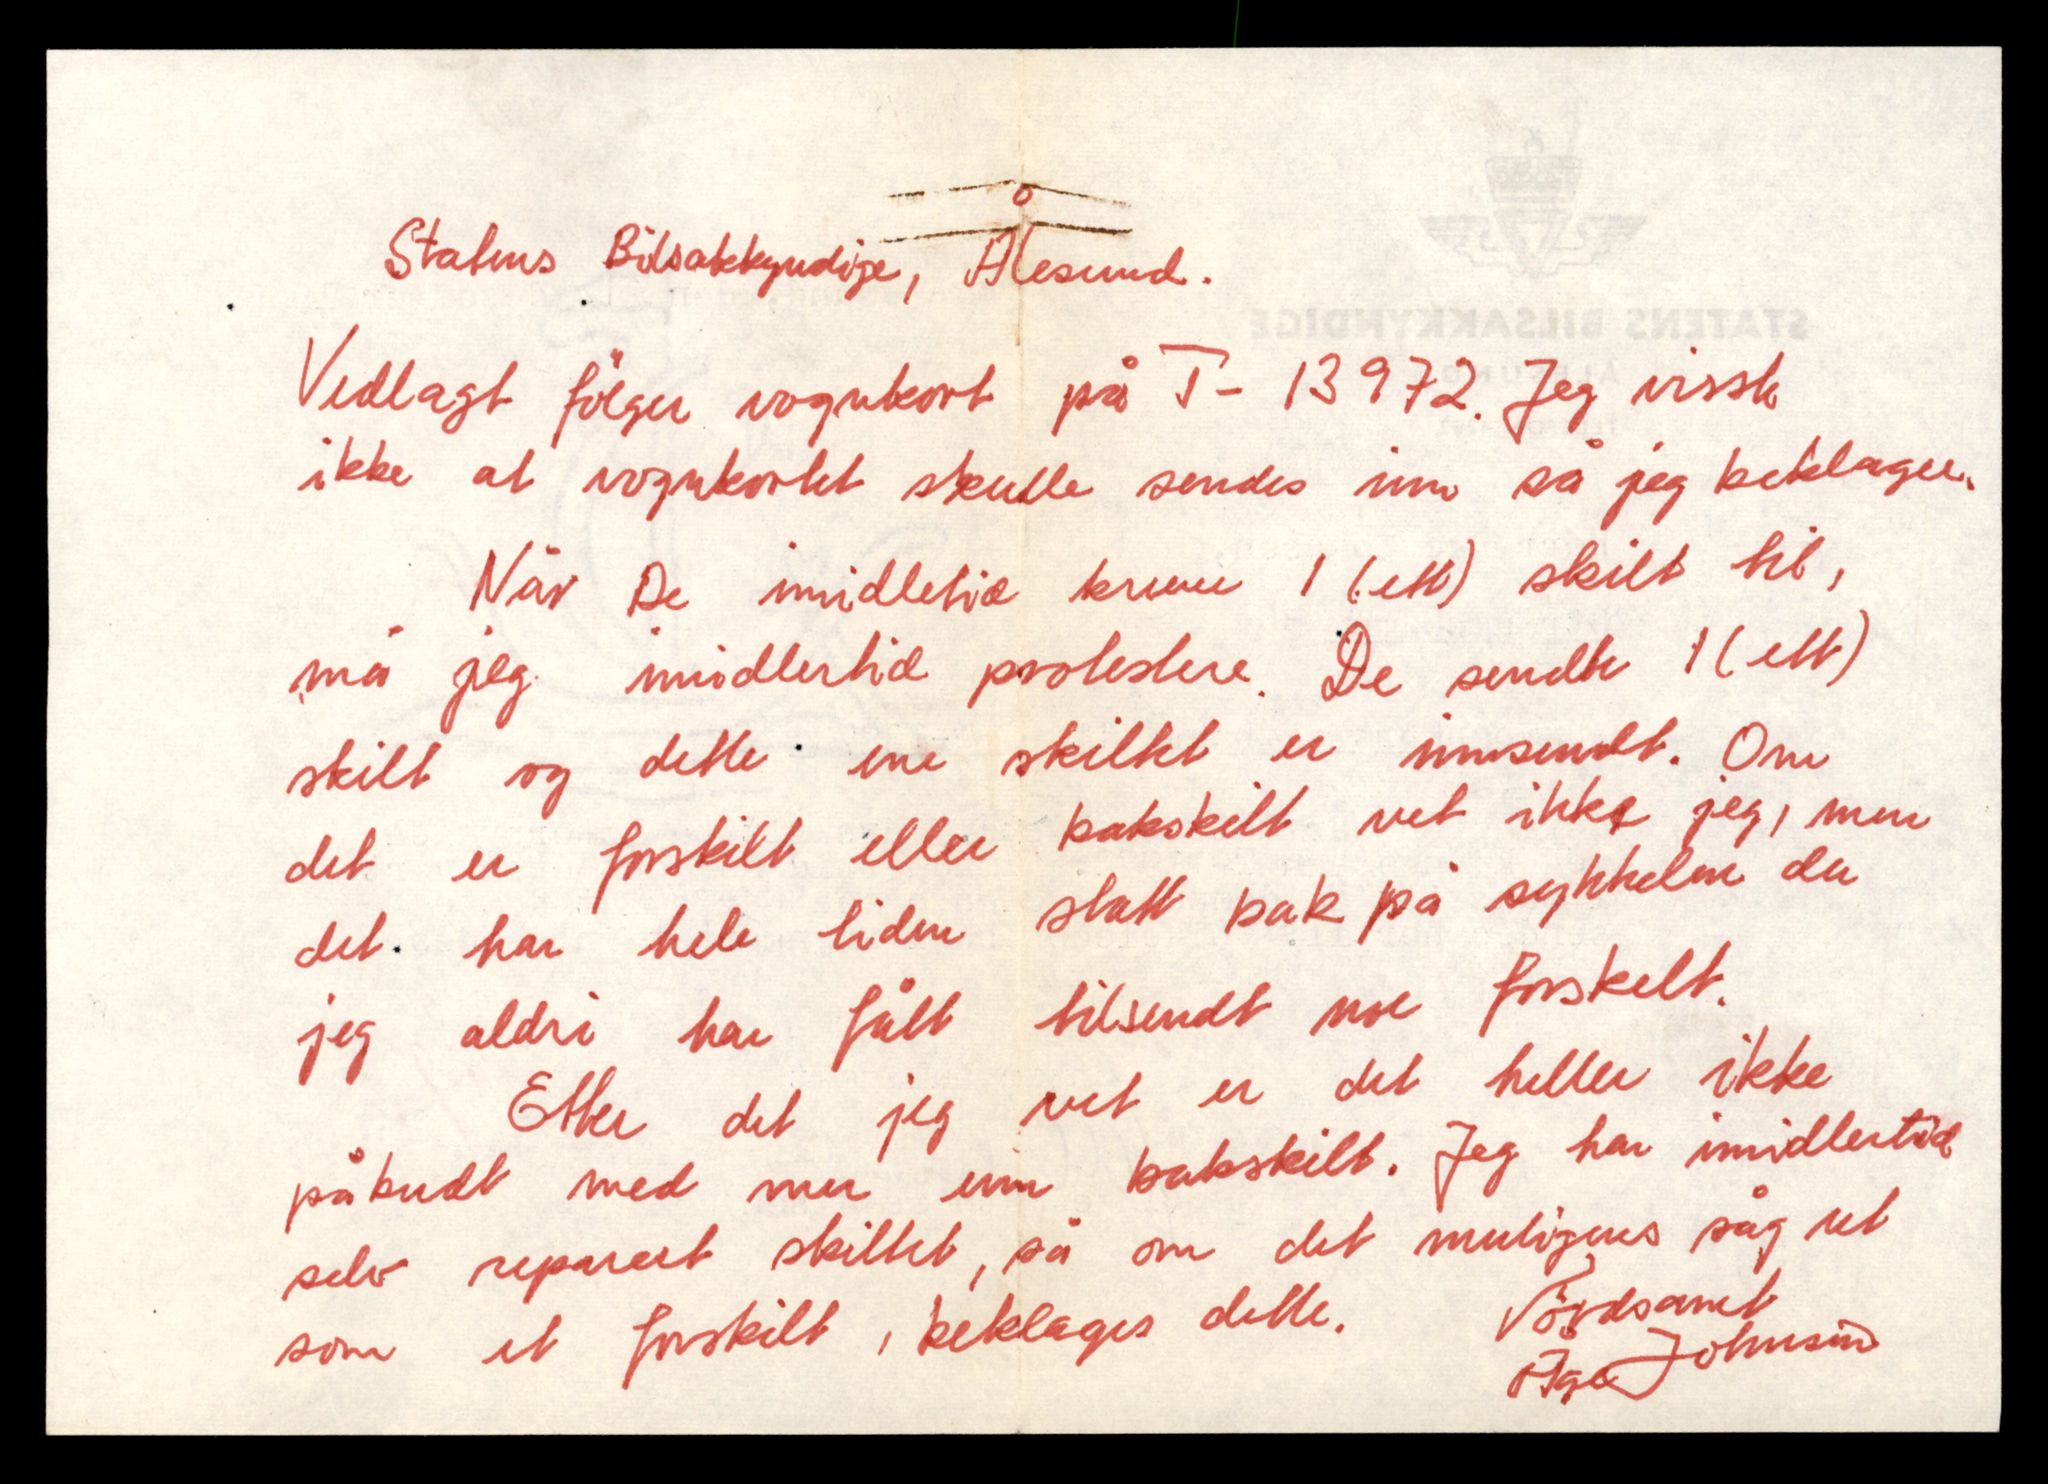 Statens Bilsakkyndige, Ålesund.
Vedlagt følger vognkort på T-13972. Jeg visste
ikke at vognkortet skulle sendes inn så jeg beklager.
Når De imidletid krever 1 (ett) skilt til,
må jeg imidlertid protestere. De sendte 1 (ett)
skilt og dette ene skiltet er innsendt. Om
det er forskilt eller bakskilt vet ikke jeg, men
det har hele tiden stått bak på sykkelen da
jeg aldri har fått tilsendt noe forskelt.
Etter det jeg vet er det heller ikke
påbudt med mer enn bakskilt. Jeg har imidlertid
selv reparert skiltet, så om det muligens såg ut
som et forskilt, beklages dette.
Vördsamt
Åge Johnsen
STATENS BILSAKKYNDIGE
ÅLESUND